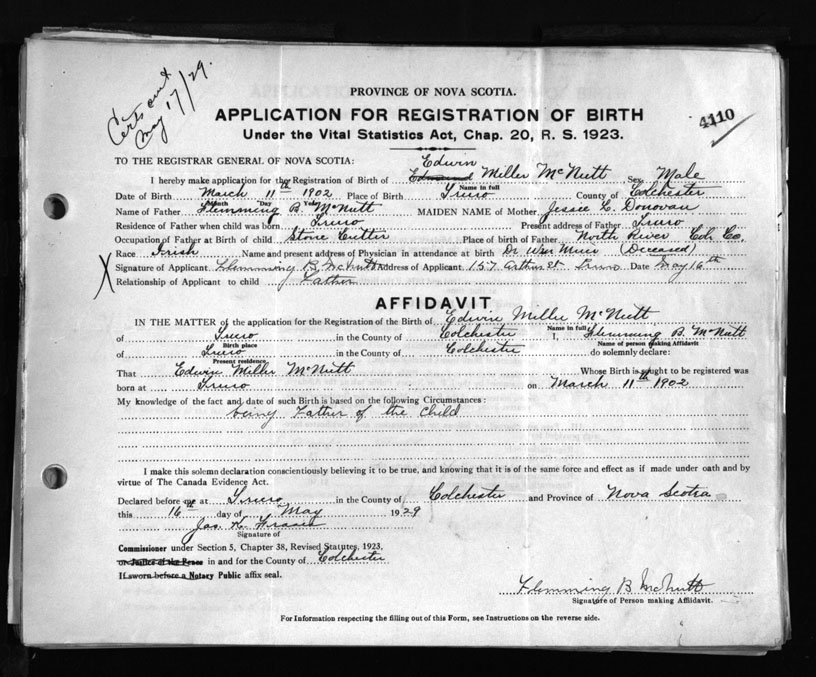 Certs out
May 17/29.
PROVINCE OF NOVA SCOTIA.
APPLICATION FOR REGISTRATION OF BIRTH
4110
Under the Vital Statistics Act, Chap. 20, R. S. 1923.
TO THE REGISTRAR GENERAL OF NOVA SCOTIA:
Edwin
I hereby make application for the Registration of Birth of Edmund Miller McNutt Sex Male
Name in full
Date of Birth March 11th 1902 Place of Birth Truro County of Colchester
Month Day Year
Name of Father Flemming B McNutt MAIDEN NAME of Mother Jessie E. Donovan
Residence of Father when child was born Truro Present address of Father Truro
Occupation of Father at Birth of child Stone Cutter Place of birth of Father North River Col. Co.
Race Irish Name and present address of Physician in attendance at birth Dr Wm Muir (Deceased)
X Signature of Applicant Flemming B. McNutt Address of Applicant 157 Arthur St Truro Date May 16th
Relationship of Applicant to child Father
AFFIDAVIT
IN THE MATTER of the application for the Registration of the Birth of Edwin Miller McNutt
Name in full
of Truro in the County of Colchester I, Flemming B. McNutt
Birth place Name of person making Affidavit
of Truro in the County of Colchester do solemnly declare:
Present residence.
That Edwin Miller McNutt Whose Birth is sought to be registered was
born at Truro on March 11th 1902
My knowledge of the fact and date of such Birth is based on the following Circumstances:
being Father of the Child
I make this solemn declaration conscientiously believing it to be true, and knowing that it is of the same force and effect as if made under oath and by
virtue of The Canada Evidence Act.
Declared before me at Truro in the County of Colchester and Province of Nova Scotia
this 16th day of May 1929
Jas. K. Fraser
Signature of
Commissioner under Section 5, Chapter 38, Revised Statutes, 1923,
or Justice of the Peace in and for the County of Colchester
If sworn before a Notary Public affix seal.
Flemming B McNutt
Signature of Person making Affidavit.
For Information respecting the filling out of this Form, see Instructions on the reverse side.